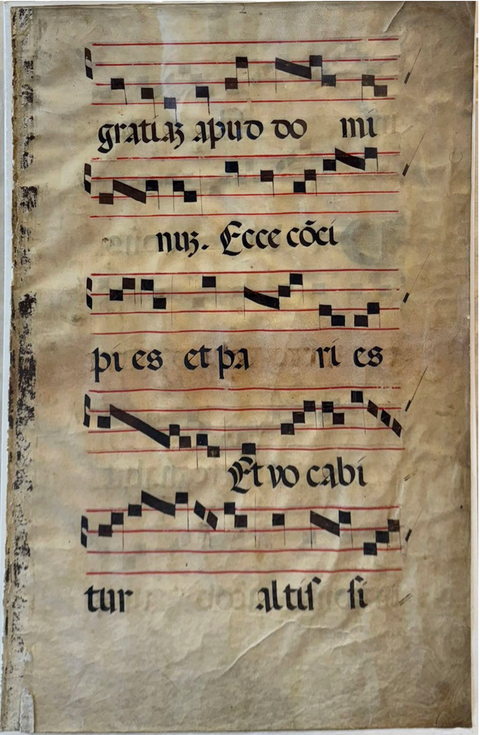 gratiaʒ apud do mi
nuʒ. Ecce cōci
pi es et pa ri es
Et vo cabi
tur altiſ ſi